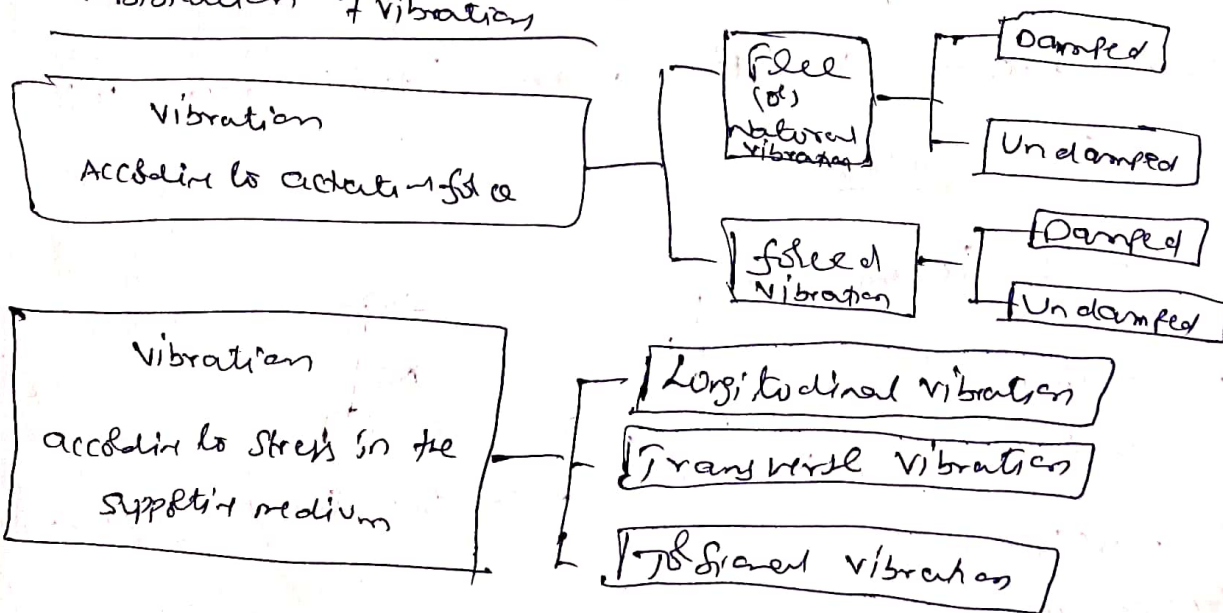 of vibration
Vibration
According to actuating force
Free
(or)
Natural
vibration
Damped
Undamped
forced
Vibration
Damped
Undamped
Vibration
according to stress in the
supporting medium
Longitudinal vibration
Transverse vibration
Torsional vibration